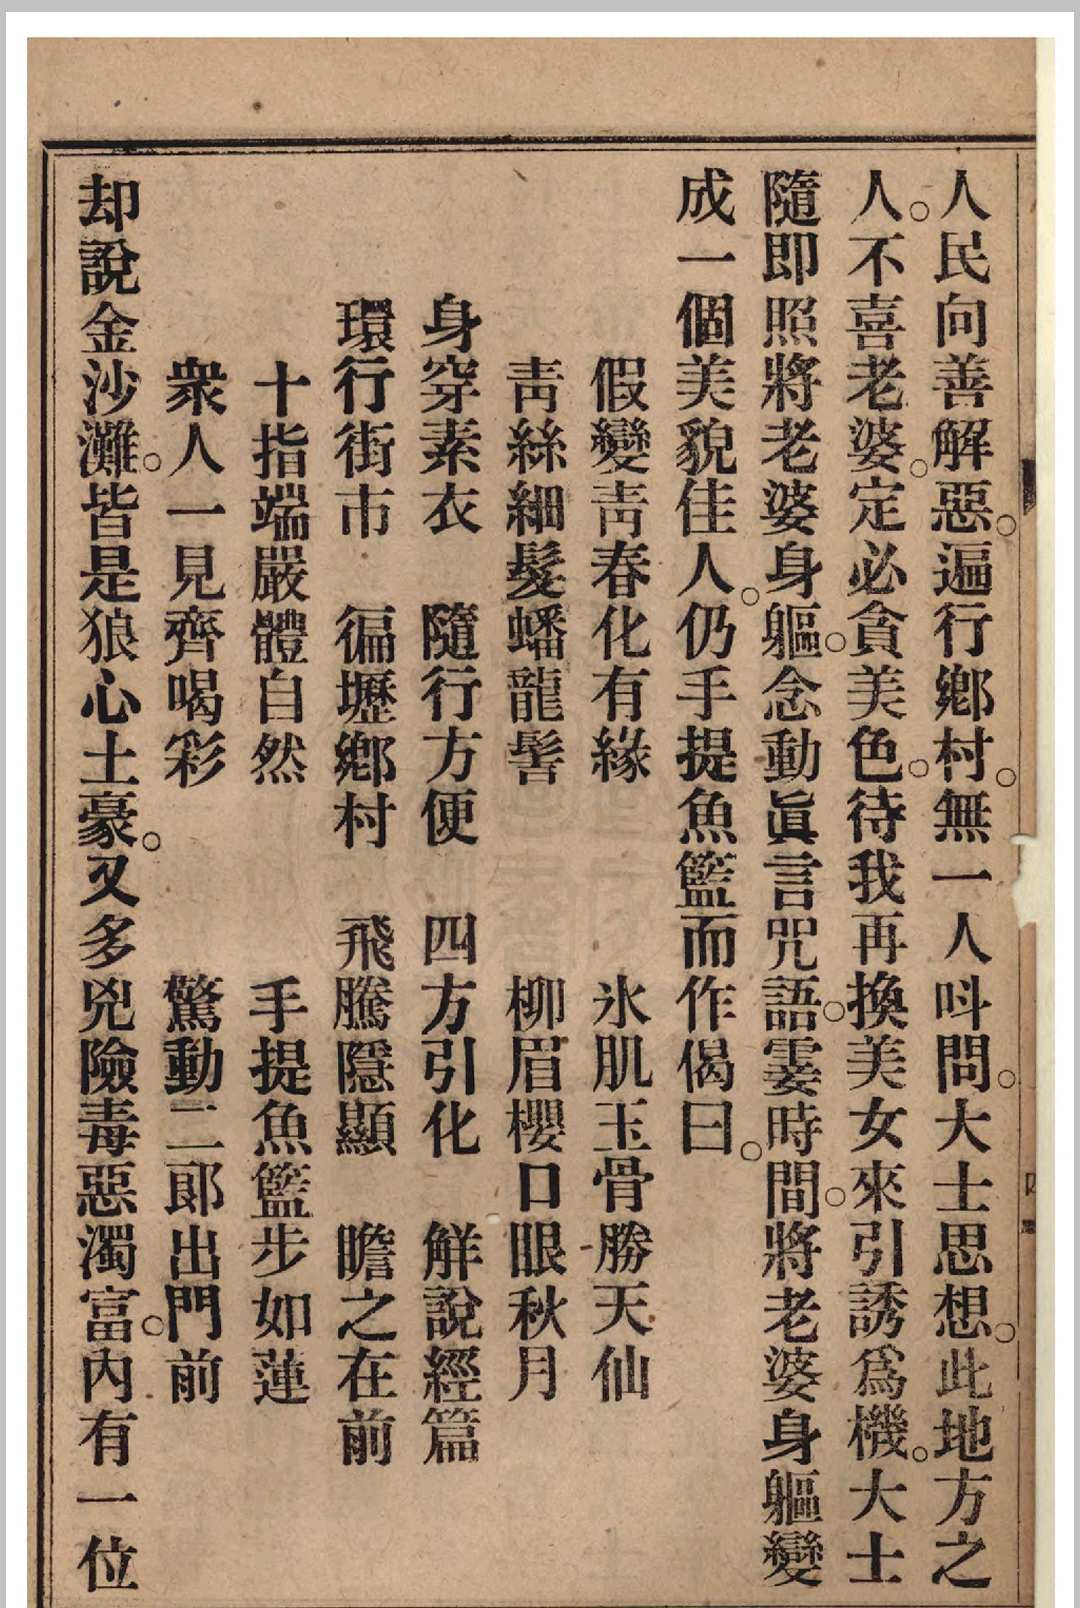 人民向善解惡。遍行鄉村。無一人呌問。大士思想。此地方之
人。不喜老婆。定必貪美色。待我再換美女來引誘爲機。大士
隨即照將老婆身軀。念動眞言咒語。霎時間。將老婆身軀變
成一個美貌佳人。仍手提魚籃而作偈曰。
假變靑春化有緣　氷肌玉骨勝天仙
靑絲細髮蟠龍髻　柳眉櫻口眼秋月
身穿素衣　隨行方便　四方引化　解說經篇
環行街市　徧壢鄉村　飛騰隱顯　瞻之在前
十指端嚴體自然　手提魚籃步如蓮
衆人一見齊喝彩　驚動二郎出門前
却說金沙灘。皆是狼心土豪。又多兇險毒惡濁富。內有一位